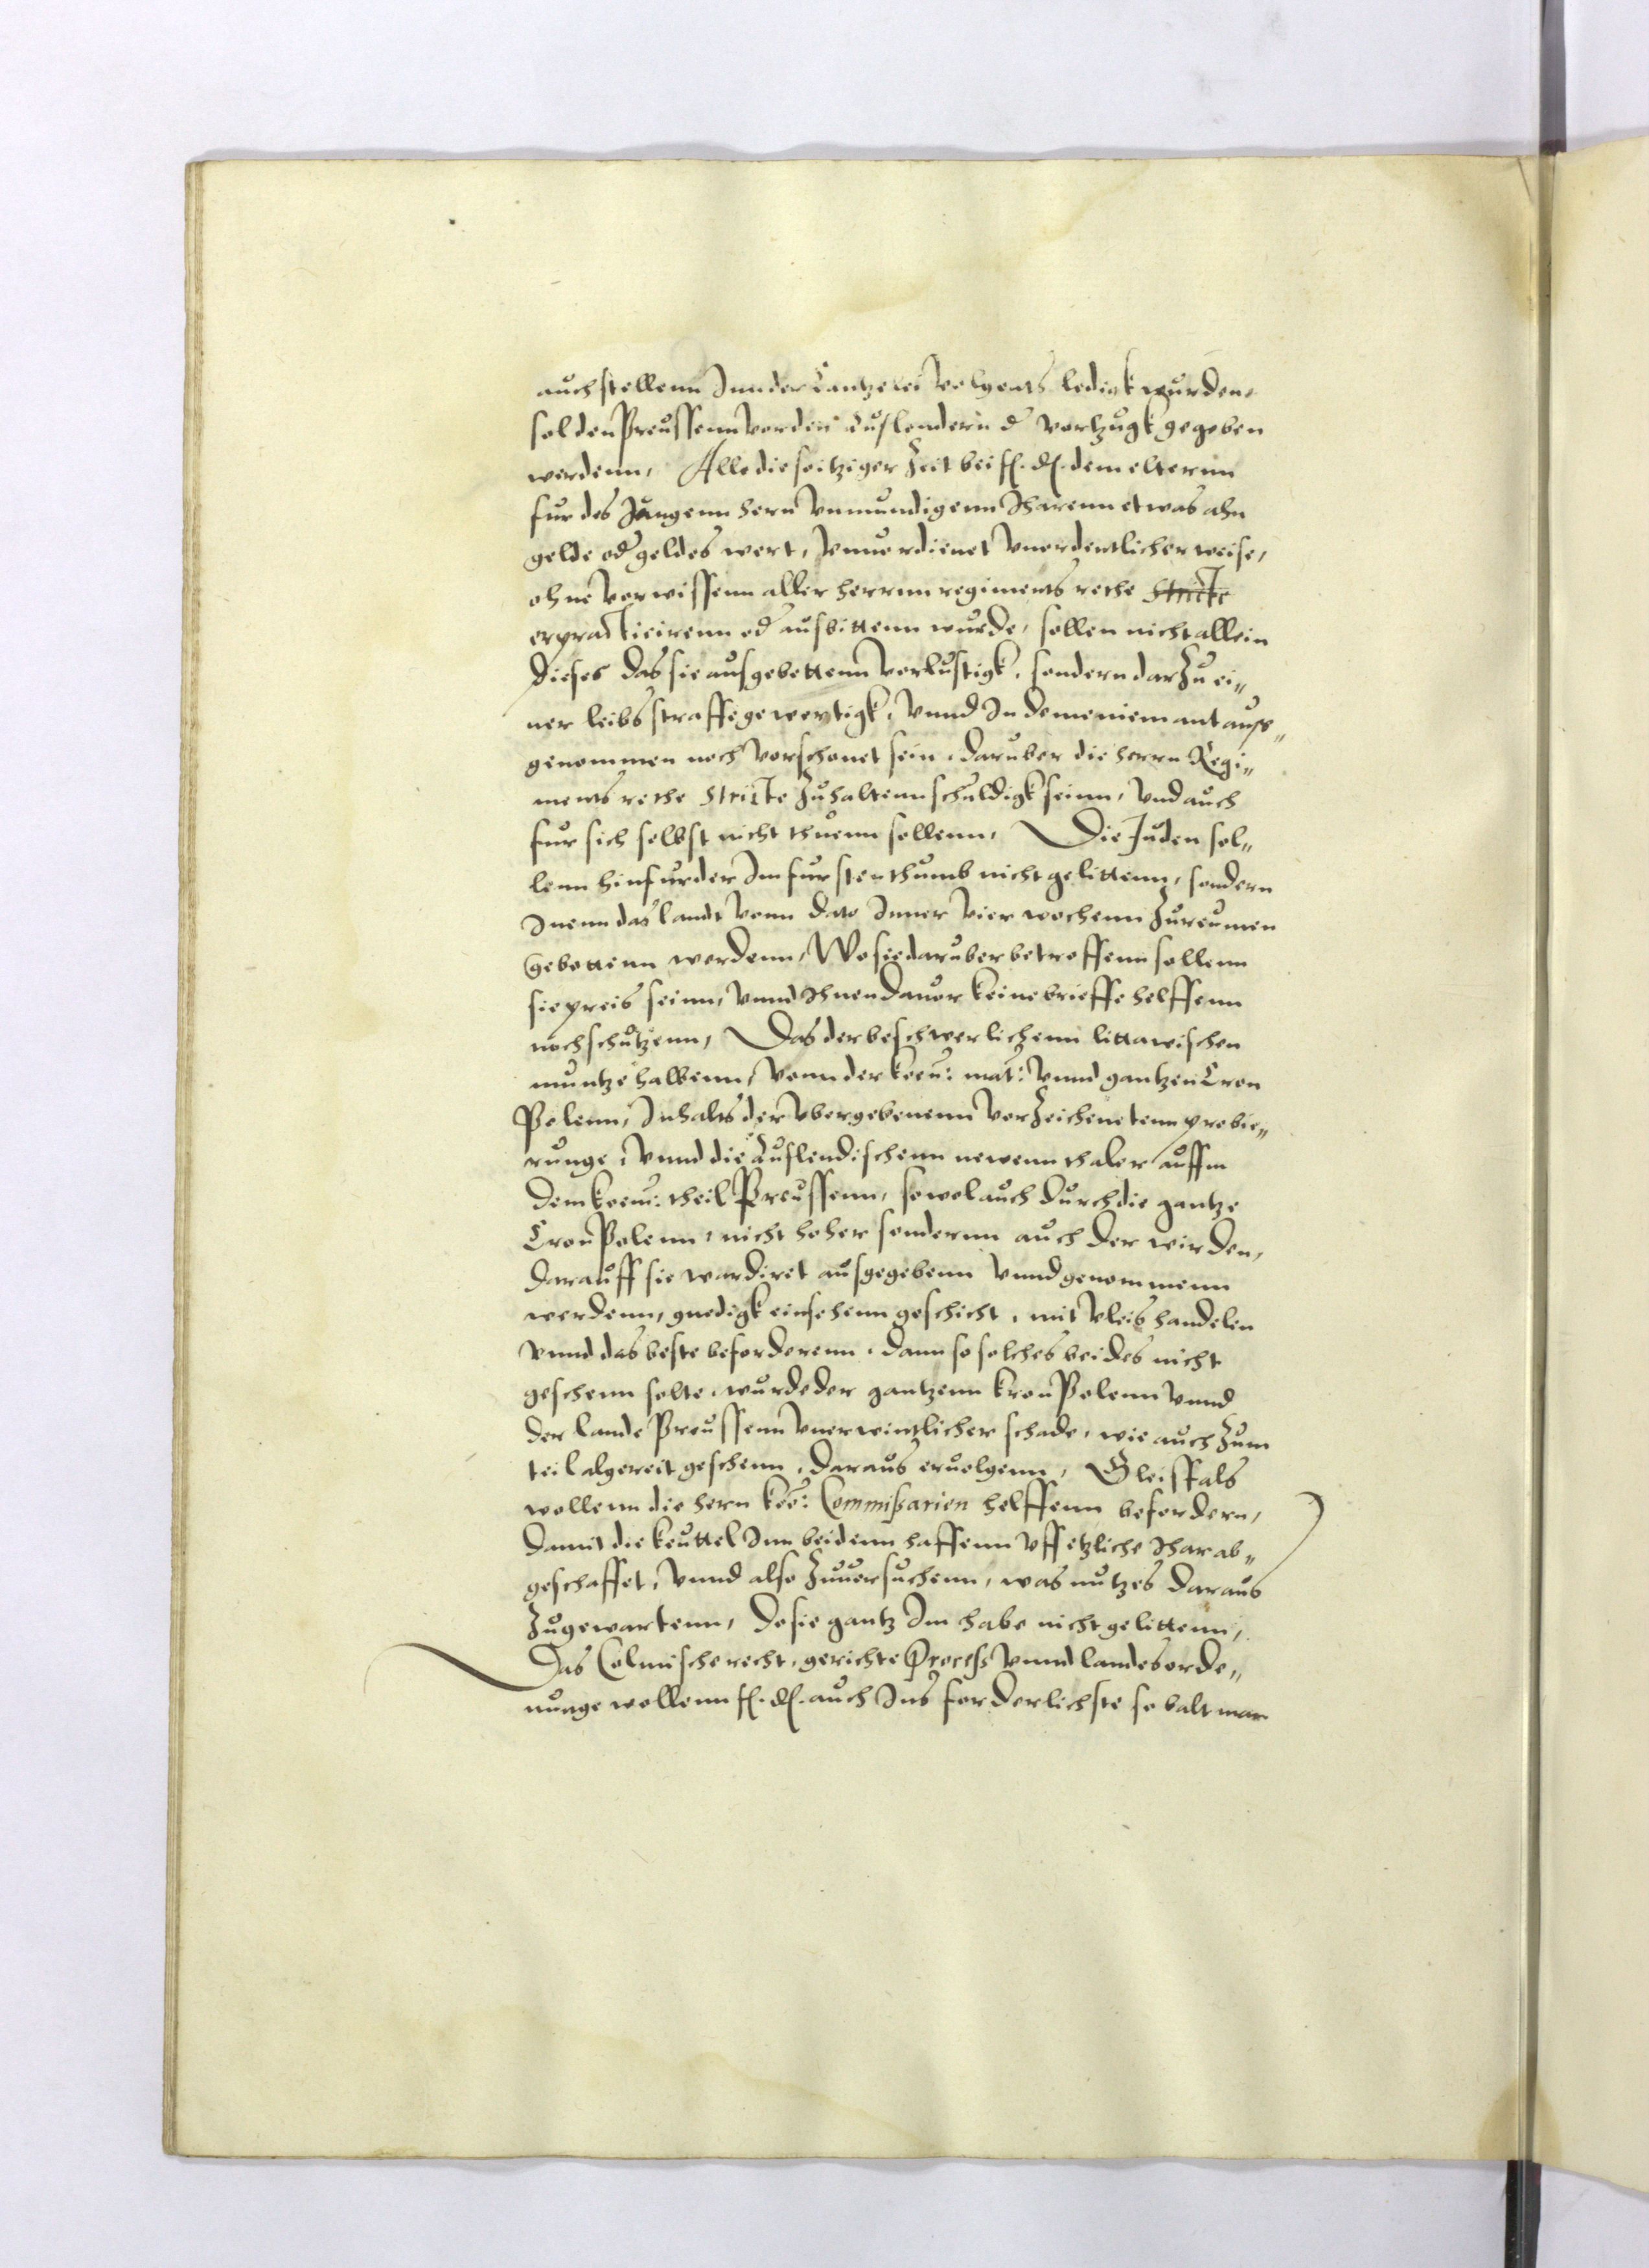 auch stellenn Inn der Cantzelei volgents ledigk wurden,
sol den Preussenn vor den Auslendern d vortzugk gegeben
werdenn, Alle die so itziger Zeit bei f. d. dem elternn
fur des Jungenn hern vnmundigenn Iharenn etwas ahn
gelde od geldes wert, vnuordienet vnordentlicher weise,
ohne vorwissenn aller herrnn regiments rethe stricte
erpracticirenn od ausbittenn wurde, sollen nicht allein
dieses das sie ausgebettenn vorlustigk, sondern darzu ei„
ner leibs straffe gewertigk, vnnd In deme niemant ausz„
genommen noch vorschonet sein, daruber die herrn Regi„
ments rethe stricte zuhaltenn schuldigk seinn, vnd auch
fur sich selbst nicht thuenn sollenn, Die Juden sol„
lenn hinfurder Im furstenthumb nicht gelittenn, sondern
Inenn das landt vonn dato Inner vier wochenn zureumen
gebottenn werdenn, Wo sie daruber betroffenn sollenn
sie preis seinn, vnnd Ihnen dauor keine brieffe helffenn
noch schutzenn, Das der beschwerlichenn littawischen
muntze halbenn, vonn der koen: mat: vnnd gantzen Cron
Polenn, Inhalts der vbergebenenn vorzeichenetenn probie„
runge, vnnd die Auslendischenn newenn thaler auffm
dem koen: theil Preussenn, sowol auch durch die gantze
Cron Polenn, nicht hoher sondernn auch der wirden,
darauff sie wardiret ausgegebenn vnnd genommenn
werdenn, gnedigk einsehenn geschicht, mit vleis handelen
vnnd das beste beforderenn, dann so solches beides nicht
geschenn solte, wurde der gantzenn kron Polenn vnnd
der lande Preussenn vnerwintlicher schade, wie auch zum
teil algereit geschenn, daraus eruolgenn, Gleisfals
wollenn die hern koe: Commissarien helffenn befordern,
damit die keuttel Inn beidenn haffenn vff etzliche Ihar ab„
geschaffet, vnnd also zuuersuchenn, was nutzes daraus
zugewartenn, do sie gantz Im habe nicht gelittenn,
Das Colmische recht, gerichte Process vnnd landesorde„
nunge wollenn f. d. auch Ins forderlichste so balt man